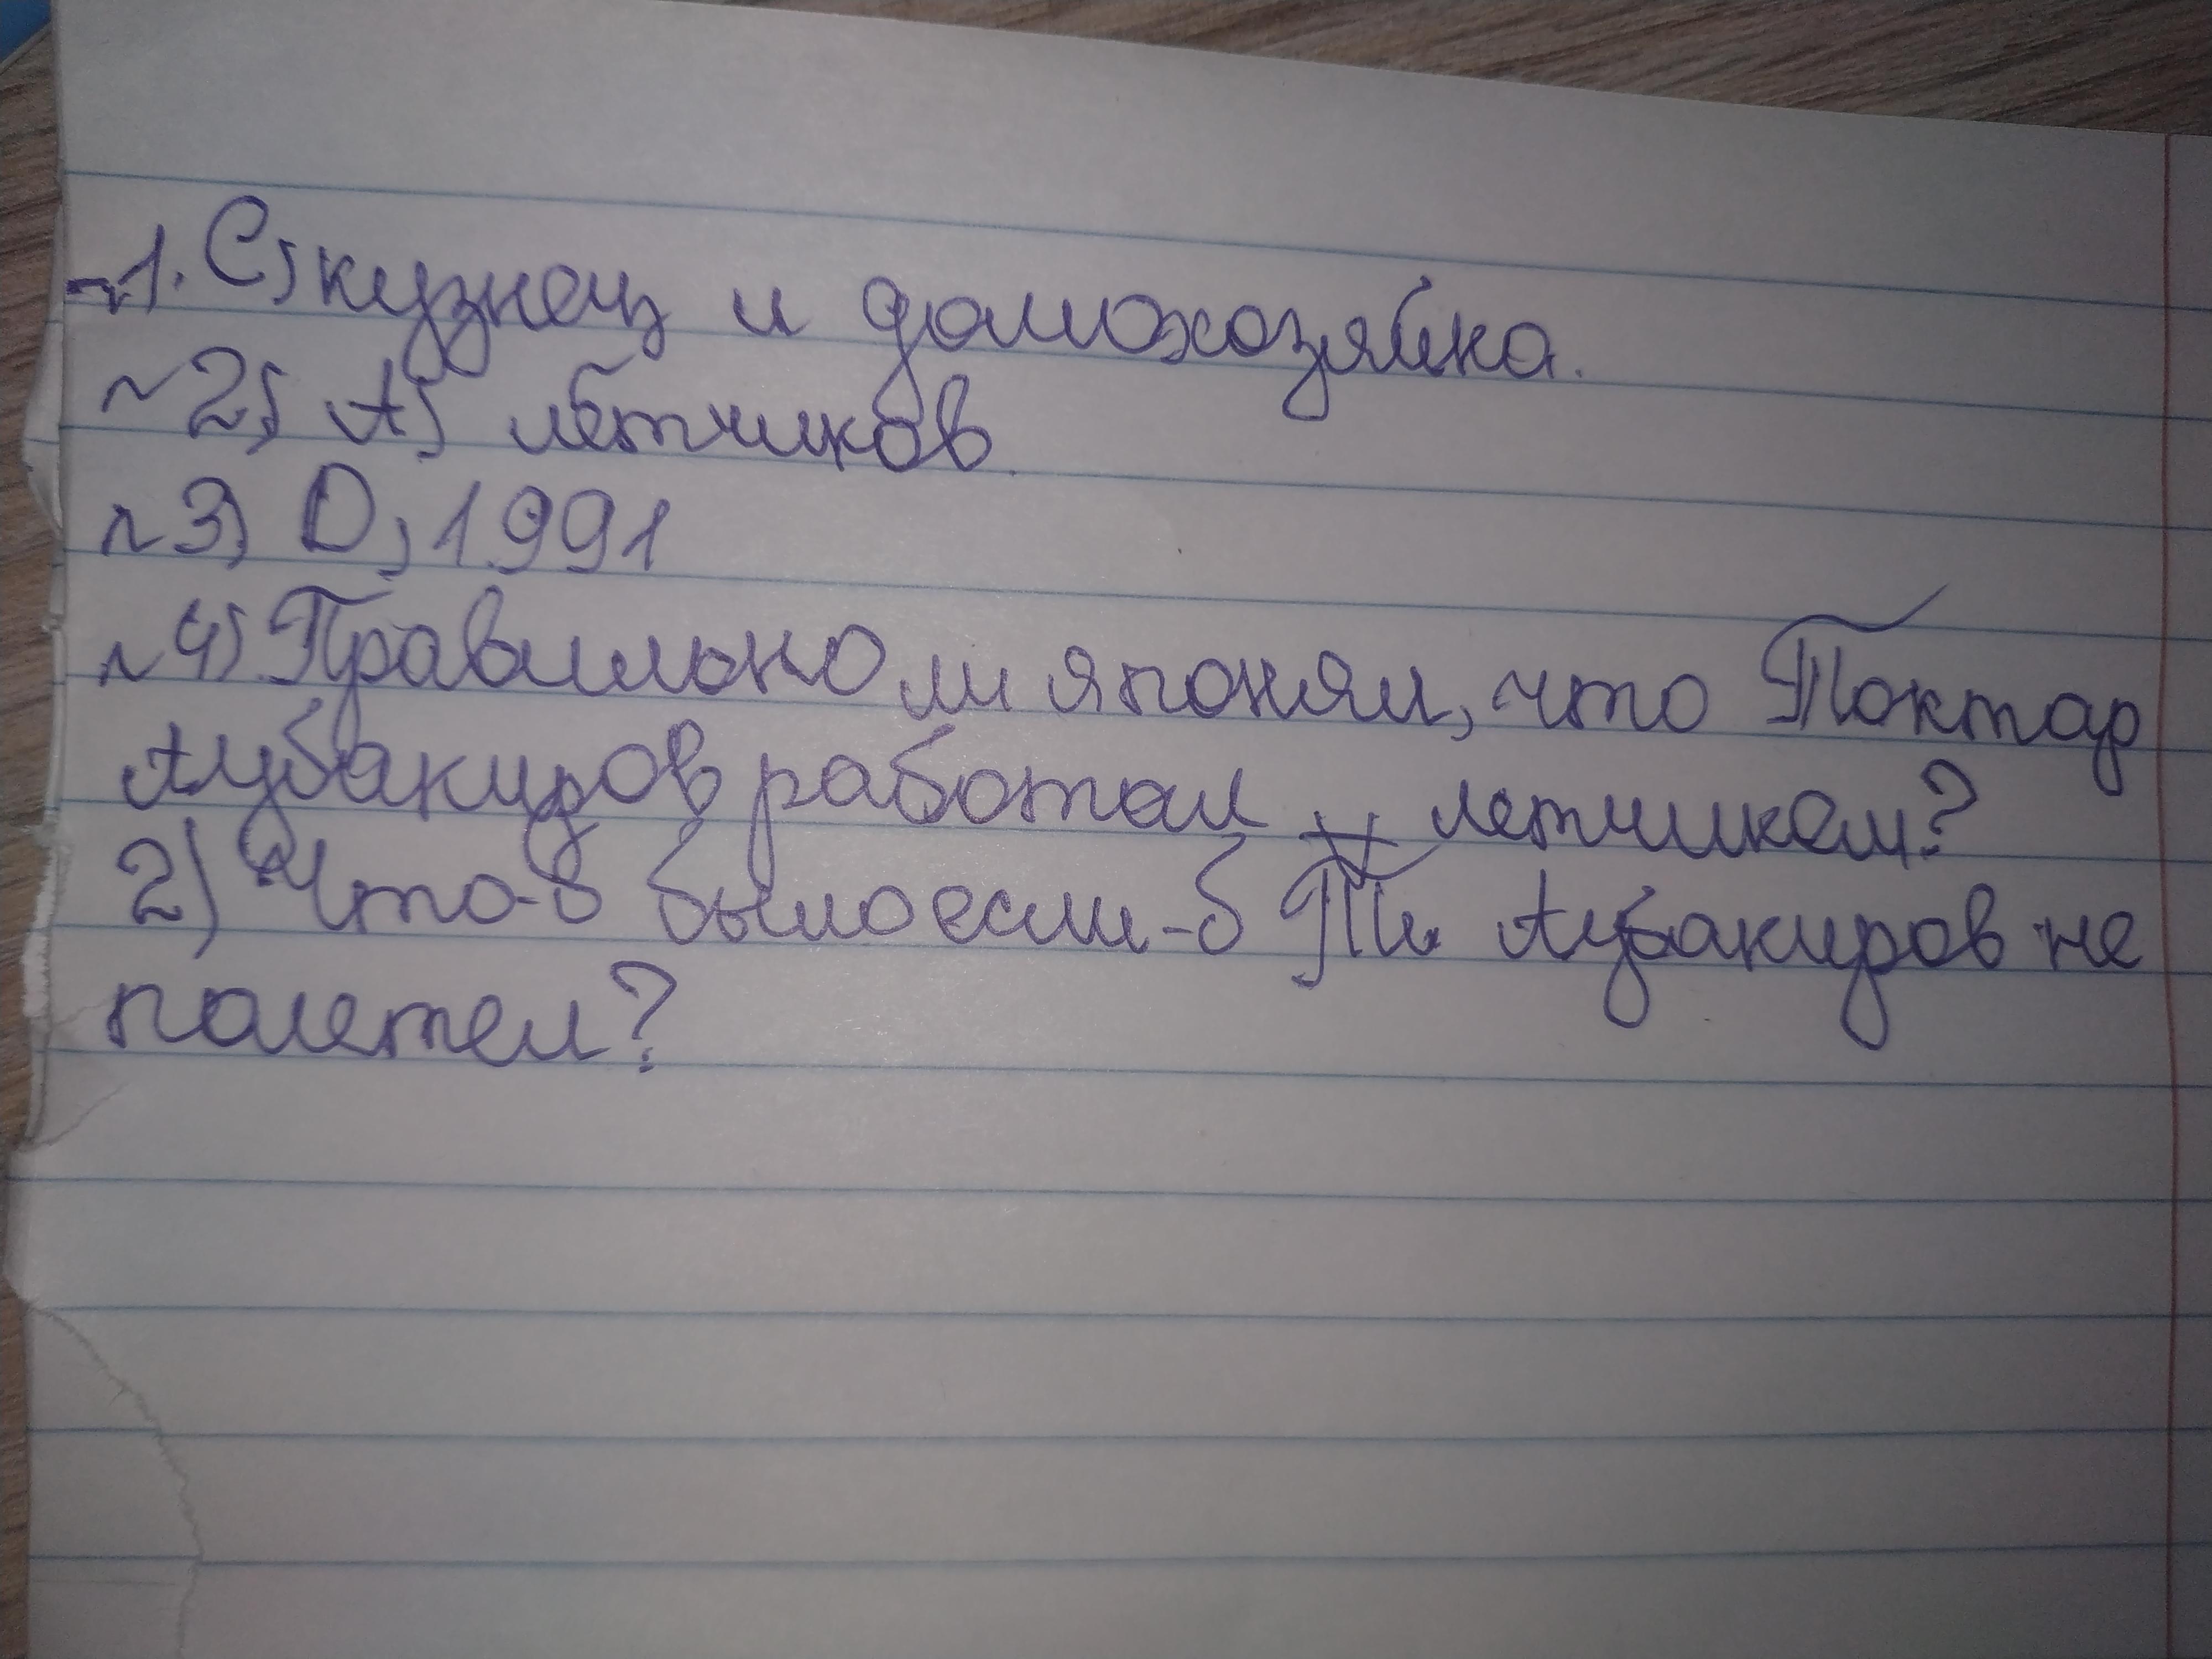 ~1. С) кузнец и домохозяйка.
~2) А) лётчиков.
~3) D) 1991
~4) Правильно ли я понял, что Токтар
Аубакиров работал летчикем?
2) Что-б было если-б Т. Аубакиров не
полетел?